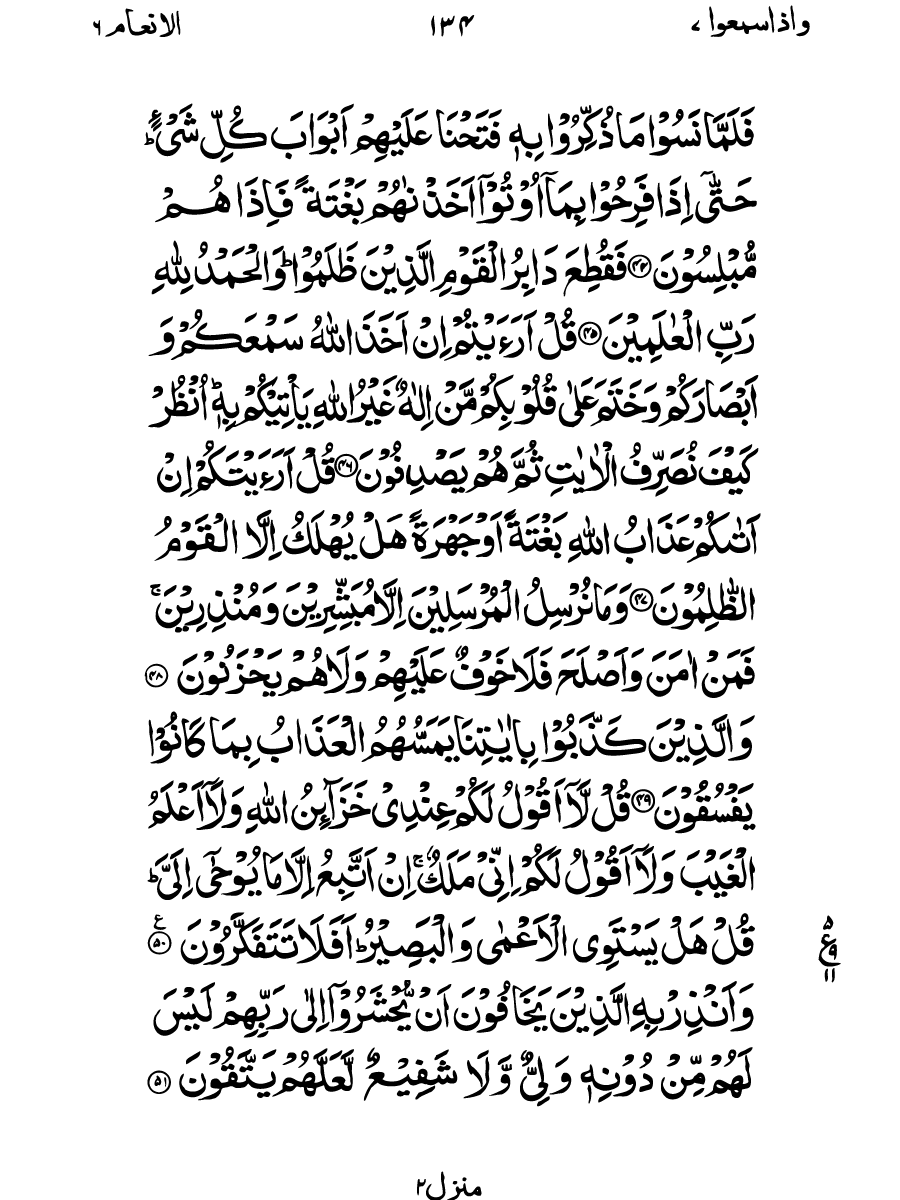 واذاسمعوا ۷ ۱۳۴ الانعام ۶
فَلَمَّا نَسُوْا مَا ذُكِّرُوْا بِهٖ فَتَحْنَا عَلَيْهِمْ اَبْوَابَ كُلِّ شَيْءٍ ؕ
حَتّٰۤى اِذَا فَرِحُوْا بِمَاۤ اُوْتُوْۤا اَخَذْنٰهُمْ بَغْتَةً فَاِذَا هُمْ
مُّبْلِسُوْنَ ﴿۴۴﴾ فَقُطِعَ دَابِرُ الْقَوْمِ الَّذِيْنَ ظَلَمُوْا ؕ وَالْحَمْدُ لِلّٰهِ
رَبِّ الْعٰلَمِيْنَ ﴿۴۵﴾ قُلْ اَرَءَيْتُمْ اِنْ اَخَذَ اللّٰهُ سَمْعَكُمْ وَ
اَبْصَارَكُمْ وَخَتَمَ عَلٰى قُلُوْبِكُمْ مَّنْ اِلٰهٌ غَيْرُ اللّٰهِ يَاْتِيْكُمْ بِهٖ ؕ اُنْظُرْ
كَيْفَ نُصَرِّفُ الْاٰيٰتِ ثُمَّ هُمْ يَصْدِفُوْنَ ﴿۴۶﴾ قُلْ اَرَءَيْتَكُمْ اِنْ
اَتٰىكُمْ عَذَابُ اللّٰهِ بَغْتَةً اَوْ جَهْرَةً هَلْ يُهْلَكُ اِلَّا الْقَوْمُ
الظّٰلِمُوْنَ ﴿۴۷﴾ وَمَا نُرْسِلُ الْمُرْسَلِيْنَ اِلَّا مُبَشِّرِيْنَ وَمُنْذِرِيْنَ ۚ
فَمَنْ اٰمَنَ وَاَصْلَحَ فَلَا خَوْفٌ عَلَيْهِمْ وَلَا هُمْ يَحْزَنُوْنَ ﴿۴۸﴾
وَالَّذِيْنَ كَذَّبُوْا بِاٰيٰتِنَا يَمَسُّهُمُ الْعَذَابُ بِمَا كَانُوْا
يَفْسُقُوْنَ ﴿۴۹﴾ قُلْ لَّاۤ اَقُوْلُ لَكُمْ عِنْدِيْ خَزَآئِنُ اللّٰهِ وَلَاۤ اَعْلَمُ
الْغَيْبَ وَلَاۤ اَقُوْلُ لَكُمْ اِنِّيْ مَلَكٌ ۚ اِنْ اَتَّبِعُ اِلَّا مَا يُوْحٰۤى اِلَيَّ ؕ
قُلْ هَلْ يَسْتَوِى الْاَعْمٰى وَالْبَصِيْرُ ؕ اَفَلَا تَتَفَكَّرُوْنَ ﴿۵۰﴾ ع
۵ ع ۹ ۱۱
وَاَنْذِرْ بِهِ الَّذِيْنَ يَخَافُوْنَ اَنْ يُّحْشَرُوْۤا اِلٰى رَبِّهِمْ لَيْسَ
لَهُمْ مِّنْ دُوْنِهٖ وَلِيٌّ وَّلَا شَفِيْعٌ لَّعَلَّهُمْ يَتَّقُوْنَ ﴿۵۱﴾
منزل ۲